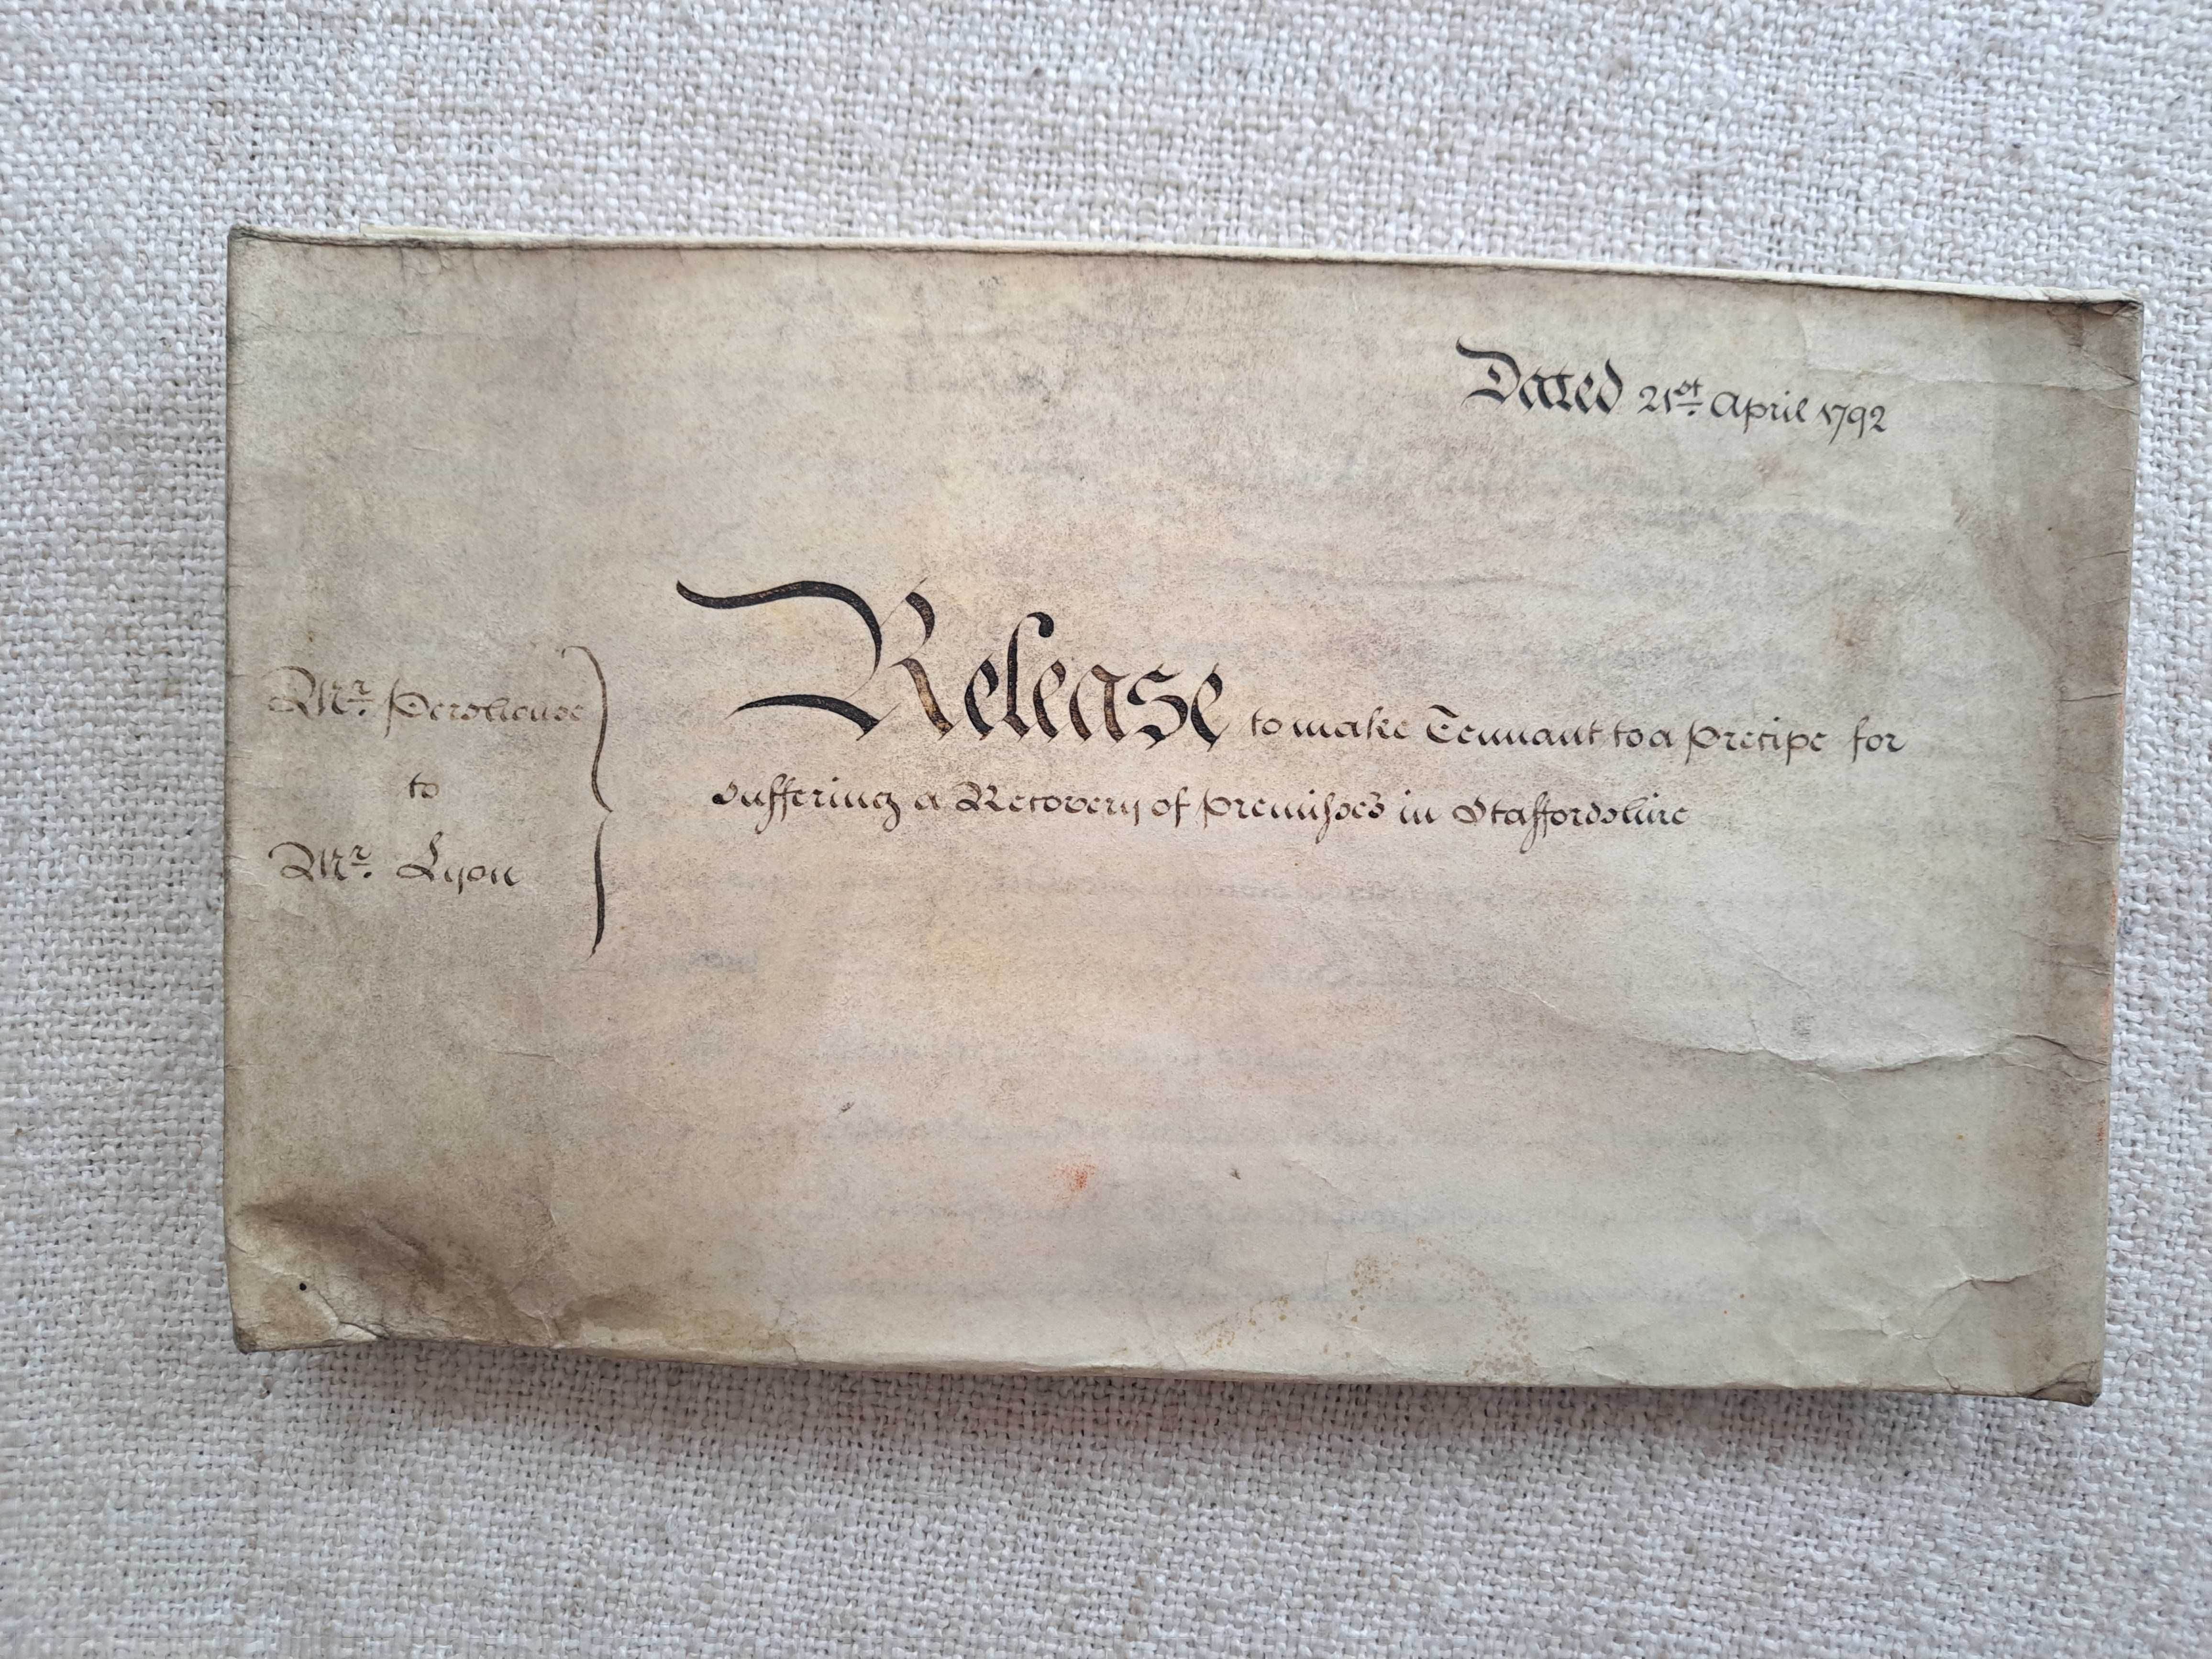 Dated 21st. April 1792
Mr. Persehouse
to
Mr. Lyon
Release to make Tennant to a Precipe for
suffering a Recovery of premisses in Staffordshire